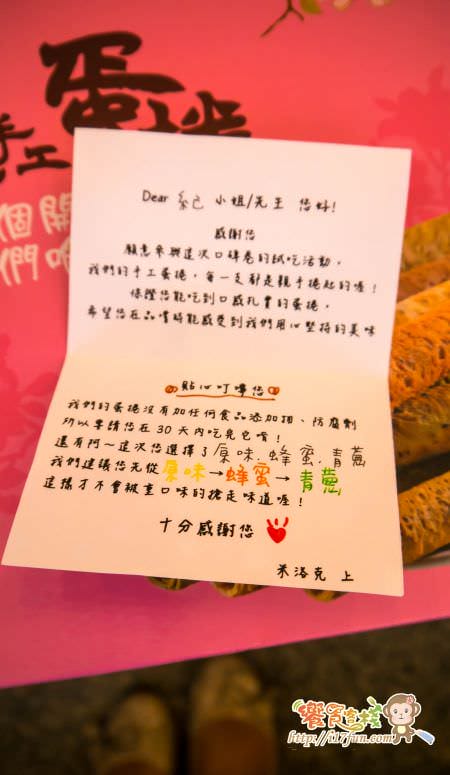 手工蛋捲
個開
們吧
Dear 紀 小姐/先生 您好!
感謝您
願意參與這次口碑卷的試吃活動,
我們的手工蛋捲,每一支都是親手捲起的喔!
保證您能吃到口感扎實的蛋捲,
希望您在品嚐時能感受到我們用心堅持的美味
貼心叮嚀您
我們的蛋捲沒有加任何食品添加物、防腐劑
所以要請您在30天內吃完它唷!
還有阿~這次您選擇了原味.蜂蜜.青蔥
我們建議您先從原味→蜂蜜→青蔥
這樣才不會被重口味的搶走味道喔!
十分感謝您
米洛克 上
http://i17fun.com/